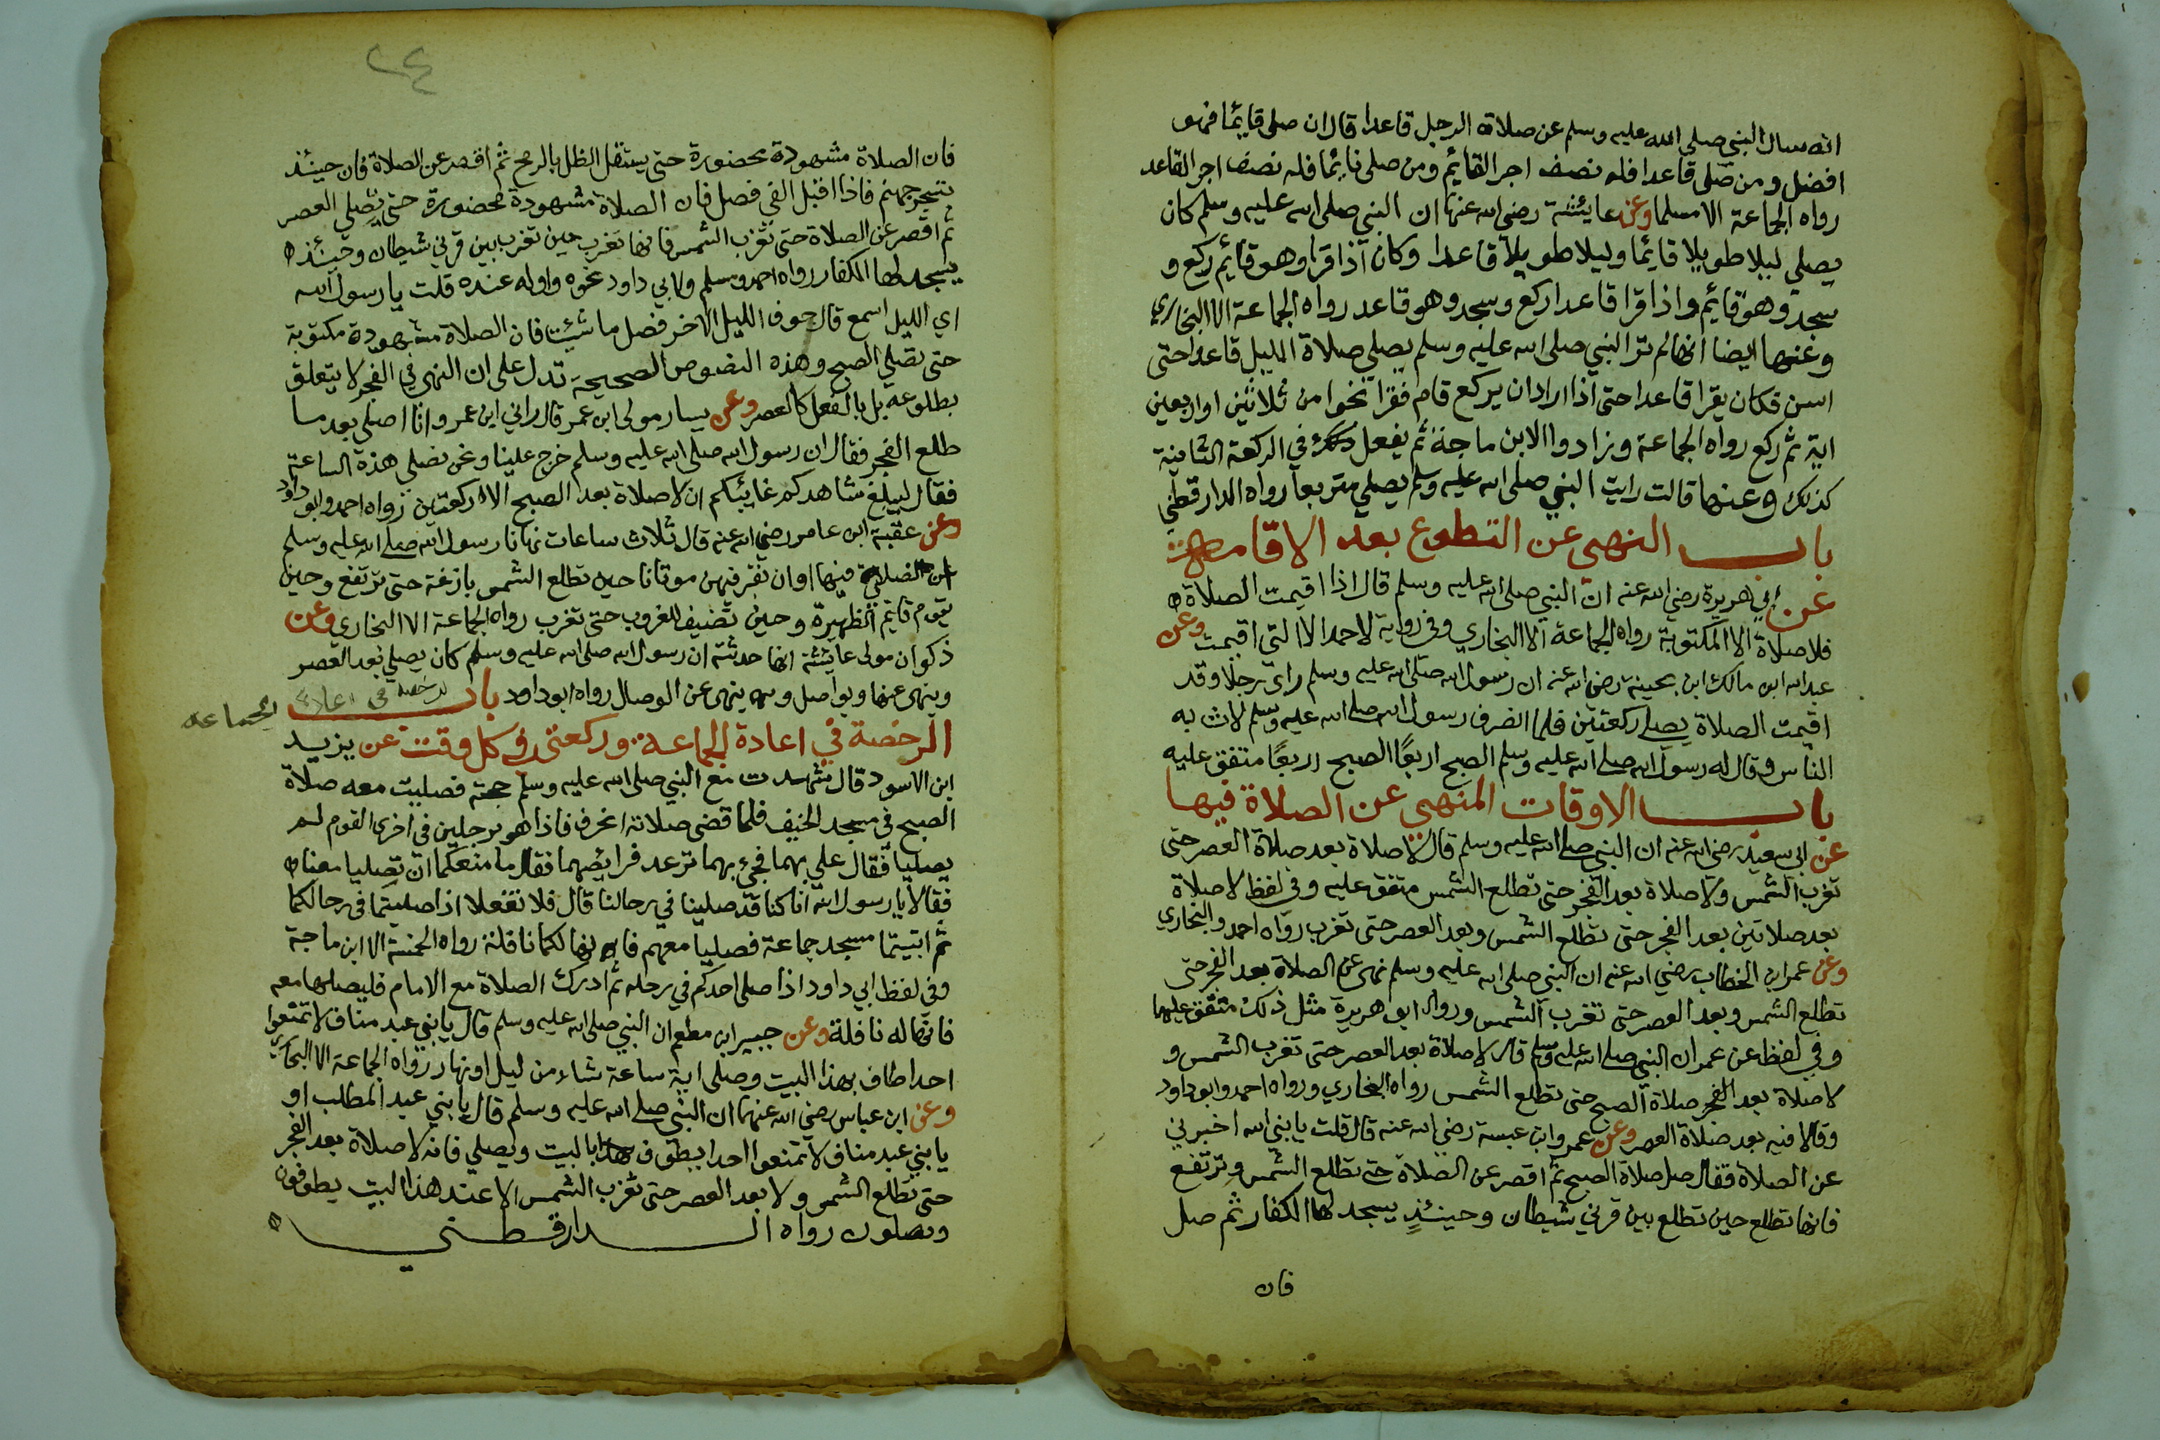 انه سال النبي صلى الله عليه وسلم عن صلاة الرجل قاعدا قال ان صلى قايما فهو
افضل ومن صلى قاعدا فله نصف اجر القايم ومن صلى نايما فله نصف اجر القاعد
رواه الجماعة الا مسلما وعن عايشة رضي الله عنها ان النبي صلى الله عليه وسلم كان
يصلي ليلا طويلا قايما وليلا طويلا قاعدا وكان اذا قرا وهو قايم ركع و
سجد وهو قايم واذا قرا قاعدا ركع وسجد وهو قاعد رواه الجماعة الا البخاري
وعنها ايضا انها لم تر النبي صلى الله عليه وسلم يصلي صلاة الليل قاعدا حتى
اسن فكان يقرا قاعدا حتى اذا اراد ان يركع قام فقرا نحوا من ثلاثين او اربعين
اية ثم ركع رواه الجماعة وزادوا الا ابن ماجة ثم يفعل في الركعة الثانية
كذلك وعنها قالت رايت النبي صلى الله عليه وسلم يصلي متربعا رواه الدارقطني
باب النهي عن التطوع بعد الاقامة
عن ابي هريرة رضي الله عنه ان النبي صلى الله عليه وسلم قال اذا اقيمت الصلاة
فلا صلاة الا المكتوبة رواه الجماعة الا البخاري وفي رواية لاحمد الا التي اقيمت وعن
عبد الله ابن مالك ابن بحينة رضي الله عنه ان رسول الله صلى الله عليه وسلم راى رجلا وقد
اقيمت الصلاة يصلي ركعتين فلما انصرف رسول الله صلى الله عليه وسلم لاث به
الناس وقال له رسول الله صلى الله عليه وسلم الصبح اربعًا الصبح اربعًا متفق عليه
باب الاوقات المنهي عن الصلاة فيها
عن ابي سعيد رضي الله عنه ان النبي صلى الله عليه وسلم قال لا صلاة بعد صلاة العصر حتى
تغرب الشمس ولا صلاة بعد الفجر حتى تطلع الشمس متفق عليه وفي لفظ لا صلاة
بعد صلاتين بعد الفجر حتى تطلع الشمس وبعد العصر حتى تغرب رواه احمد والبخاري
وعن عمر ابن الخطاب رضي الله عنه ان النبي صلى الله عليه وسلم نهى عن الصلاة بعد الفجر حتى
تطلع الشمس وبعد العصر حتى تغرب الشمس ورواه ابو هريرة مثل ذلك متفق عليهما
وفي لفظ عن عمر ان النبي صلى الله عليه وسلم قال لا صلاة بعد العصر حتى تغرب الشمس و
لا صلاة بعد الفجر صلاة الصبح حتى تطلع الشمس رواه البخاري ورواه احمد وابو داود
وقالا فيه بعد صلاة العصر وعن عمرو ابن عبسة رضي الله عنه قال قلت يا نبي الله اخبرني
عن الصلاة فقال صل صلاة الصبح ثم اقصر عن الصلاة حتى تطلع الشمس وترتفع
فانها تطلع حين تطلع بين قرني شيطان وحينئذٍ يسجد لها الكفار ثم صل
فان
٢٤
فان الصلاة مشهودة محضورة حتى يستقل الظل بالرمح ثم اقصر عن الصلاة فان حينئذ
تسجر جهنم فاذا اقبل الفي فصل فان الصلاة مشهودة محضورة حتى تصلي العصر
ثم اقصر عن الصلاة حتى تغرب الشمس فانها تغرب حين تغرب بين قرني شيطان وحينئذ
يسجد لها الكفار رواه احمد ومسلم ولابي داود نحوه واوله عنده قلت يا رسول الله
اي الليل اسمع قال جوف الليل الاخر فصل ما شئت فان الصلاة مشهودة مكتوبة
حتى تصلي الصبح وهذه النصوص الصحيحة تدل على ان النهي في الفجر لا يتعلق
بطلوعه بل بالفعل كالعصر وعن يسار مولى ابن عمر قال راني ابن عمر وانا اصلي بعد ما
طلع الفجر فقال ان رسول الله صلى الله عليه وسلم خرج علينا ونحن نصلي هذه الساعة
فقال ليبلغ شاهدكم غايبكم ان لا صلاة بعد الصبح الا ركعتين رواه احمد وابو داود
وعن عقبة ابن عامر رضي الله عنه قال ثلاث ساعات نهانا رسول الله صلى الله عليه وسلم
ان نصلي فيها او ان نقبر فيهن موتانا حين تطلع الشمس بازغة حتى ترتفع وحين
يقوم قايم الظهيرة وحين تضيف للغروب حتى تغرب رواه الجماعة الا البخاري وعن
ذكوان مولى عايشة انها حدثته ان رسول الله صلى الله عليه وسلم كان يصلي بعد العصر
وينهى عنها ويواصل وينهى عن الوصال رواه ابو داود باب الرخصة في اعادة الجماعة
الرخصة في اعادة الجماعة وركعتي كل وقت عن يزيد
ابن الاسود قال شهدت مع النبي صلى الله عليه وسلم حجته فصليت معه صلاة
الصبح في مسجد الخيف فلما قضى صلاته انحرف فاذا هو برجلين في اخرى القوم لم
يصليا فقال علي بهما فجيء بهما ترعد فرايصهما فقال ما منعكما ان تصليا معنا
فقالا يا رسول الله انا كنا قد صلينا في رحالنا قال فلا تفعلا اذا صليتما في رحالكما
ثم اتيتما مسجد جماعة فصليا معهم فانها لكما نافلة رواه الخمسة الا ابن ماجة
وفي لفظ ابي داود اذا صلى احدكم في رحله ثم ادرك الصلاة مع الامام فليصلها معه
فانها له نافلة وعن جبير ابن مطعم ان النبي صلى الله عليه وسلم قال يا بني عبد مناف لا تمنعوا
احدا طاف بهذا البيت وصلى اية ساعة شاء من ليل او نهار رواه الجماعة الا البخاري
وعن ابن عباس رضي الله عنهما ان النبي صلى الله عليه وسلم قال يا بني عبد المطلب او
يا بني عبد مناف لا تمنعوا احدا يطوف بالبيت ويصلي فانه لا صلاة بعد الفجر
حتى تطلع الشمس ولا بعد العصر حتى تغرب الشمس الا عند هذا البيت يطوفون
ويصلون رواه الدارقطني